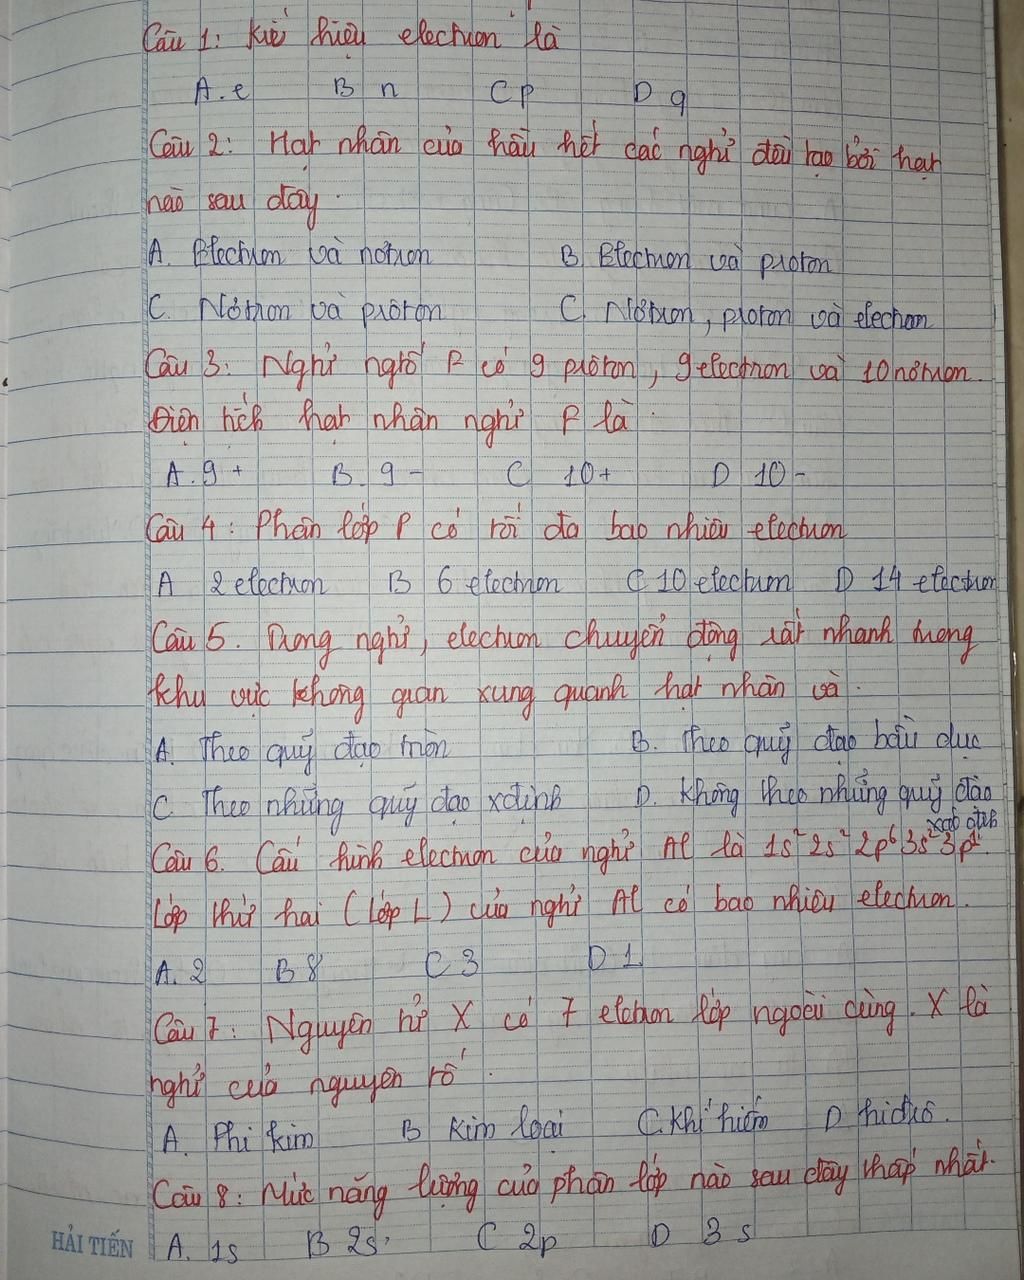 Câu 1: Kiế hiệu electron là
A. e B n C p D q
Câu 2: Hạt nhân của hầu hết các nghử đều tạo bởi hạt
nào sau đây.
A. Electron và nơtron B Electron và proton
C. Nơtron và prôton C. Nơtron, proton và electron
Câu 3: Nghử ngtố F có 9 prôton, 9 electron và 10 nơtron.
Điện tích hạt nhân nghử F là.
A. 9+ B. 9- C 10+ D 10-
Câu 4: Phân lớp P có tối đa bao nhiêu electron
A 2 electron B 6 electron C 10 electron D 14 electron
Câu 5. Trong nghử, electron chuyển động rất nhanh trong
khu vực không gian xung quanh hạt nhân và.
A. Theo quỹ đạo tròn B. Theo quỹ đạo bầu dục
C. Theo những quỹ đạo xđịnh D. Không theo những quỹ đảo
xác định
Câu 6. Cấu hình electron của nghử Al là 1s² 2s² 2p⁶ 3s² 3p¹.
Lớp thứ hai (Lớp L) của nghử Al có bao nhiêu electron.
A. 2 B 8 C 3 D 1
Câu 7: Nguyên tử X có 7 elctron lớp ngoài cùng. X là
nghử của nguyên tố.
A. Phi kim B Kim loại C. Khí hiếm D hiđrô.
Câu 8: Mức năng lượng của phân lớp nào sau đây thấp nhất.
A. 1s B 2s. C 2p D 3s
HẢI TIẾN